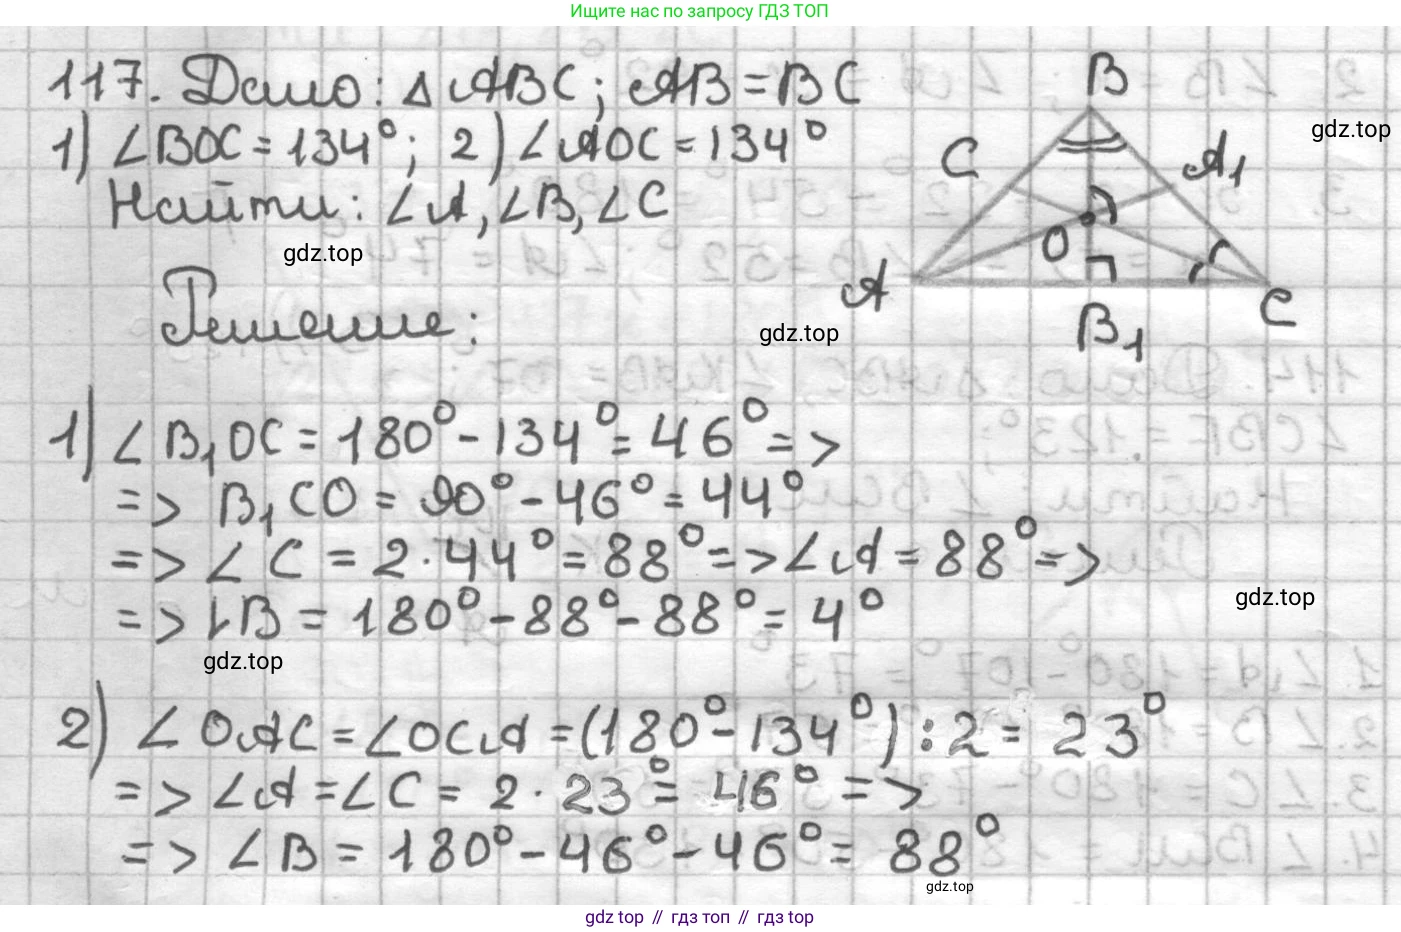 Ищите нас по запросу ГДЗ ТОП
117. Дано: △ABC; AB = BC
1) ∠BOC = 134°; 2) ∠AOC = 134°
Найти: ∠A, ∠B, ∠C
B
C
A₁
O
A
B₁
C
gdz.top
gdz.top
gdz.top
Решение:
1) ∠B₁OC = 180° - 134° = 46° =>
=> B₁CO = 90° - 46° = 44°
=> ∠C = 2·44° = 88° => ∠A = 88° =>
=> ∠B = 180° - 88° - 88° = 4°
gdz.top
gdz.top
2) ∠OAC = ∠OCA = (180° - 134°) : 2 = 23°
=> ∠A = ∠C = 2·23° = 46° =>
=> ∠B = 180° - 46° - 46° = 88°
gdz.top
gdz top // гдз топ // gdz top